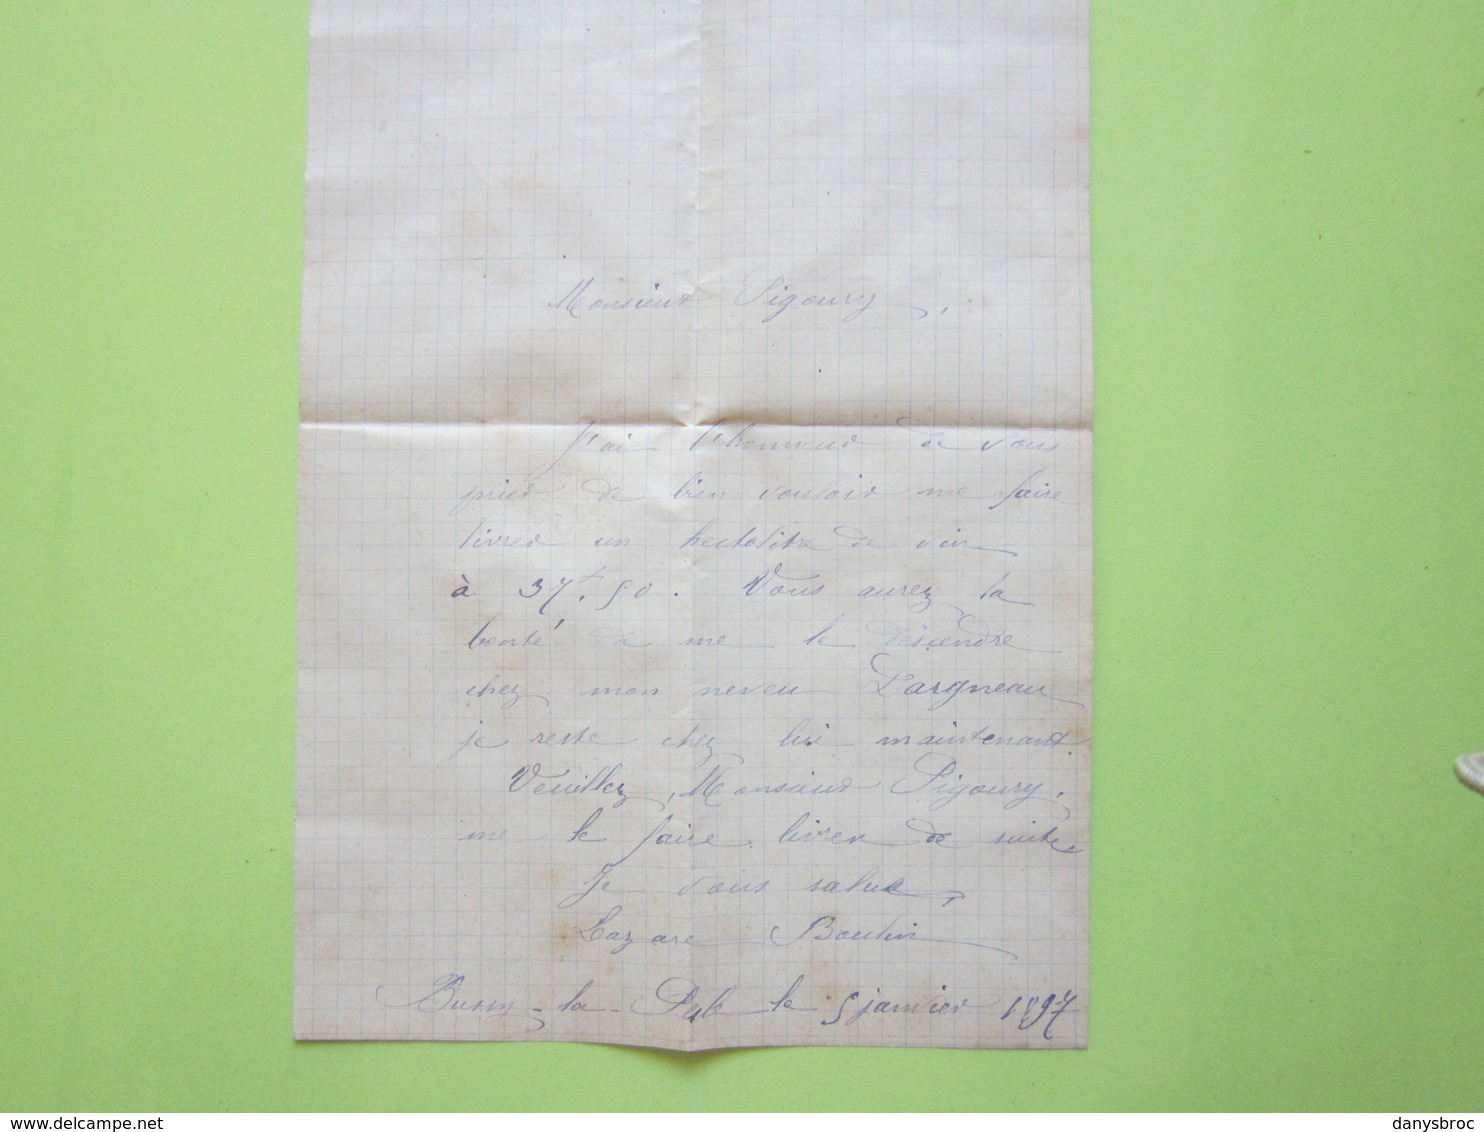 Monsieur Pigoury,
J'ai l'honneur de vous
prier de bien vouloir me faire
livrer un hectolitre de vin
à 37f.50. Vous aurez la
bonté de me le descendre
chez mon neveu Largneau
je reste chez lui maintenant.
Veuillez, Monsieur Pigoury,
me le faire livrer de suite.
Je vous salue,
Lazare Boutin
Bussy-la-Pesle le 5 janvier 1897
www.delcampe.net
danysbroc